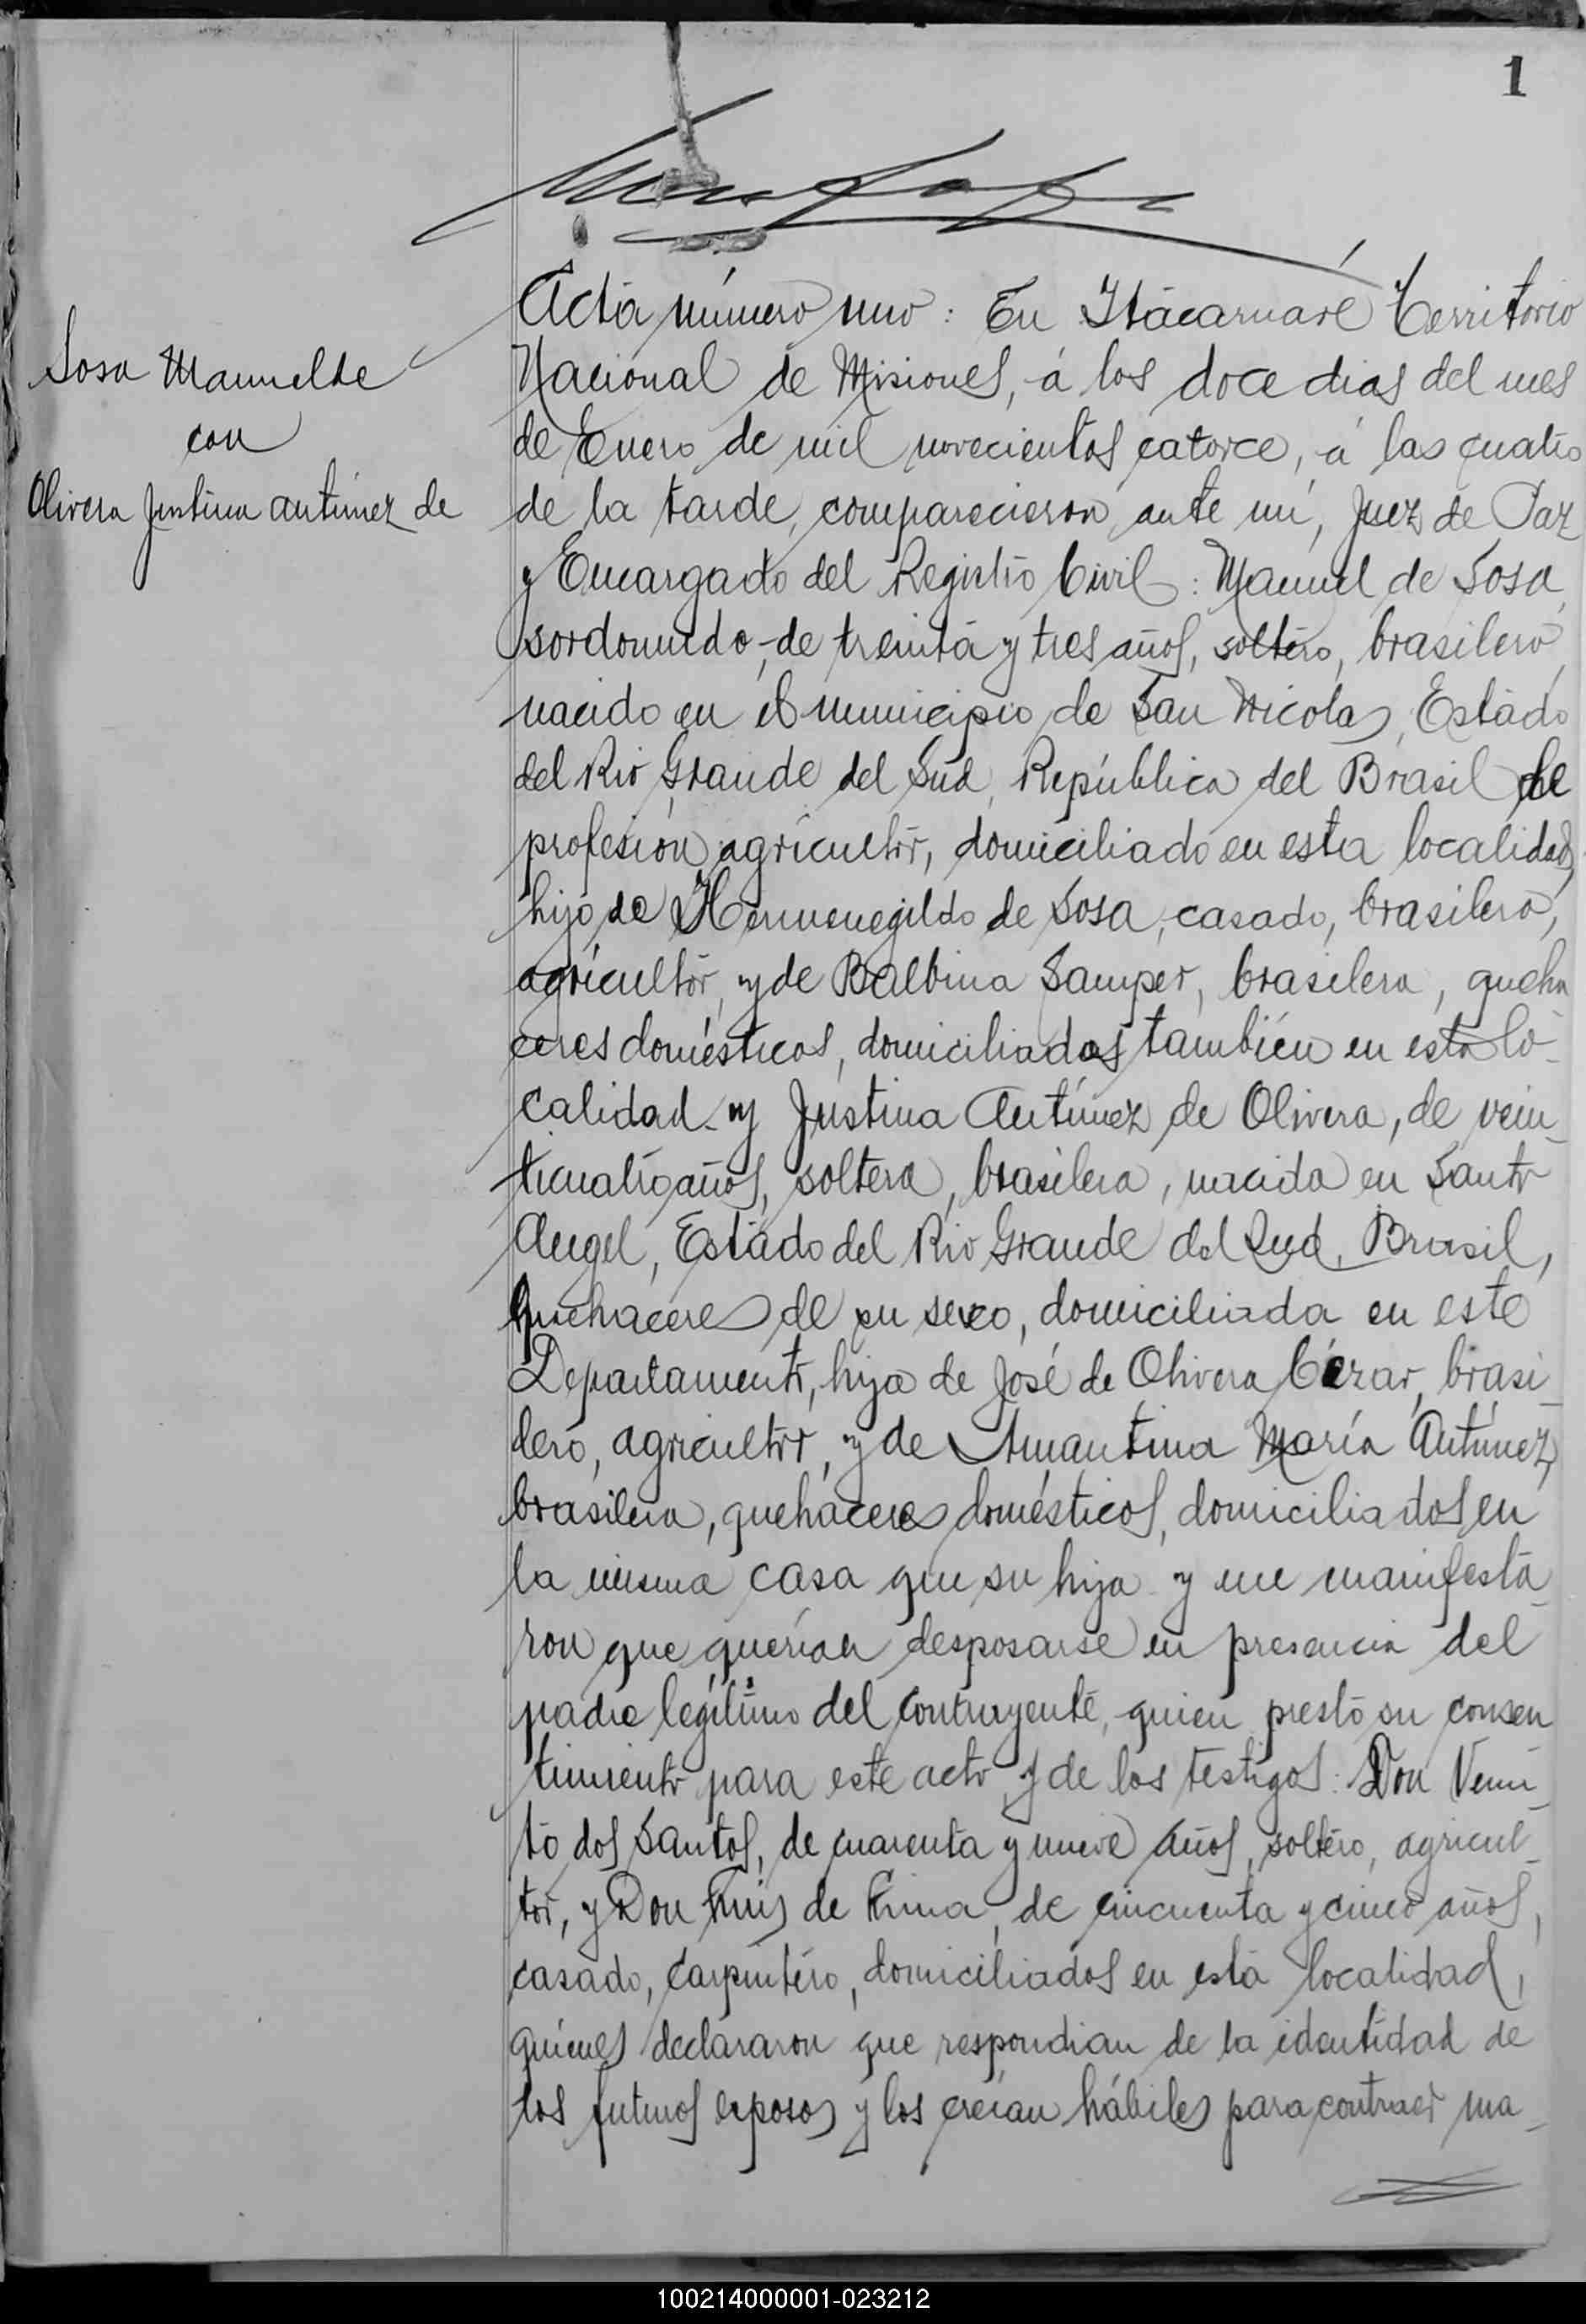 1
Acta número uno: En Itacaruaré Territorio
Sosa Manuel de
con
Olivera Justina Antúnez de
Nacional de Misiones, á los doce dias del mes
de Enero de mil novecientos catorce, á las cuatro
de la tarde, comparecieron ante mí, Juez de Paz
y Encargado del Registro Civil: Manuel de Sosa,
sordomudo, de treinta y tres años, soltero, brasilero,
nacido en el municipio de San Nicolas, Estado
del Rio Grande del Sud, República del Brasil de
profesión agricultor, domiciliado en esta localidad,
hijo de Hermenegildo de Sosa, casado, brasilero,
agricultor, y de Balbina Samper, brasilera, queha
ceres domésticos, domiciliados también en esta lo-
calidad y Justina Antúnez de Olivera, de vein-
ticuatro años, soltera, brasilera, nacida en Santo
Angel, Estado del Rio Grande del Sud, Brasil,
quehaceres de su sexo, domiciliada en este
Departamento, hija de José de Olivera Cézar, brasi-
lero, agricultor, y de Amantina María Antúnez,
brasilera, quehaceres domésticos, domiciliados en
la misma casa que su hija y me manifesta-
ron que querían desposarse en presencia del
padre legítimo del contrayente, quien prestó su consen
timiento para este acto y de los testigos: Don
to dos Santos, de cuarenta y nueve años, soltero, agricul-
tor, y Don Luis de Lima, de cincuenta y cinco años,
casado, carpintero, domiciliados en esta localidad,
quienes declararon que respondian de la identidad de
los futuros esposos y los creían hábiles para contraer ma-
100214000001-023212